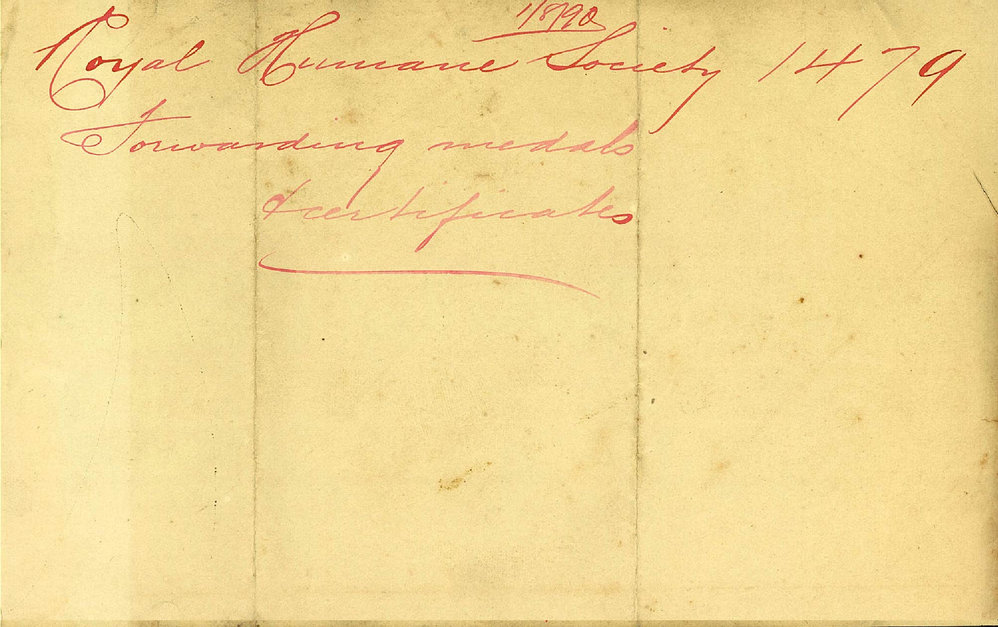 1/8/90
Royal Humane Society 1479
Forwarding medals
& certificates